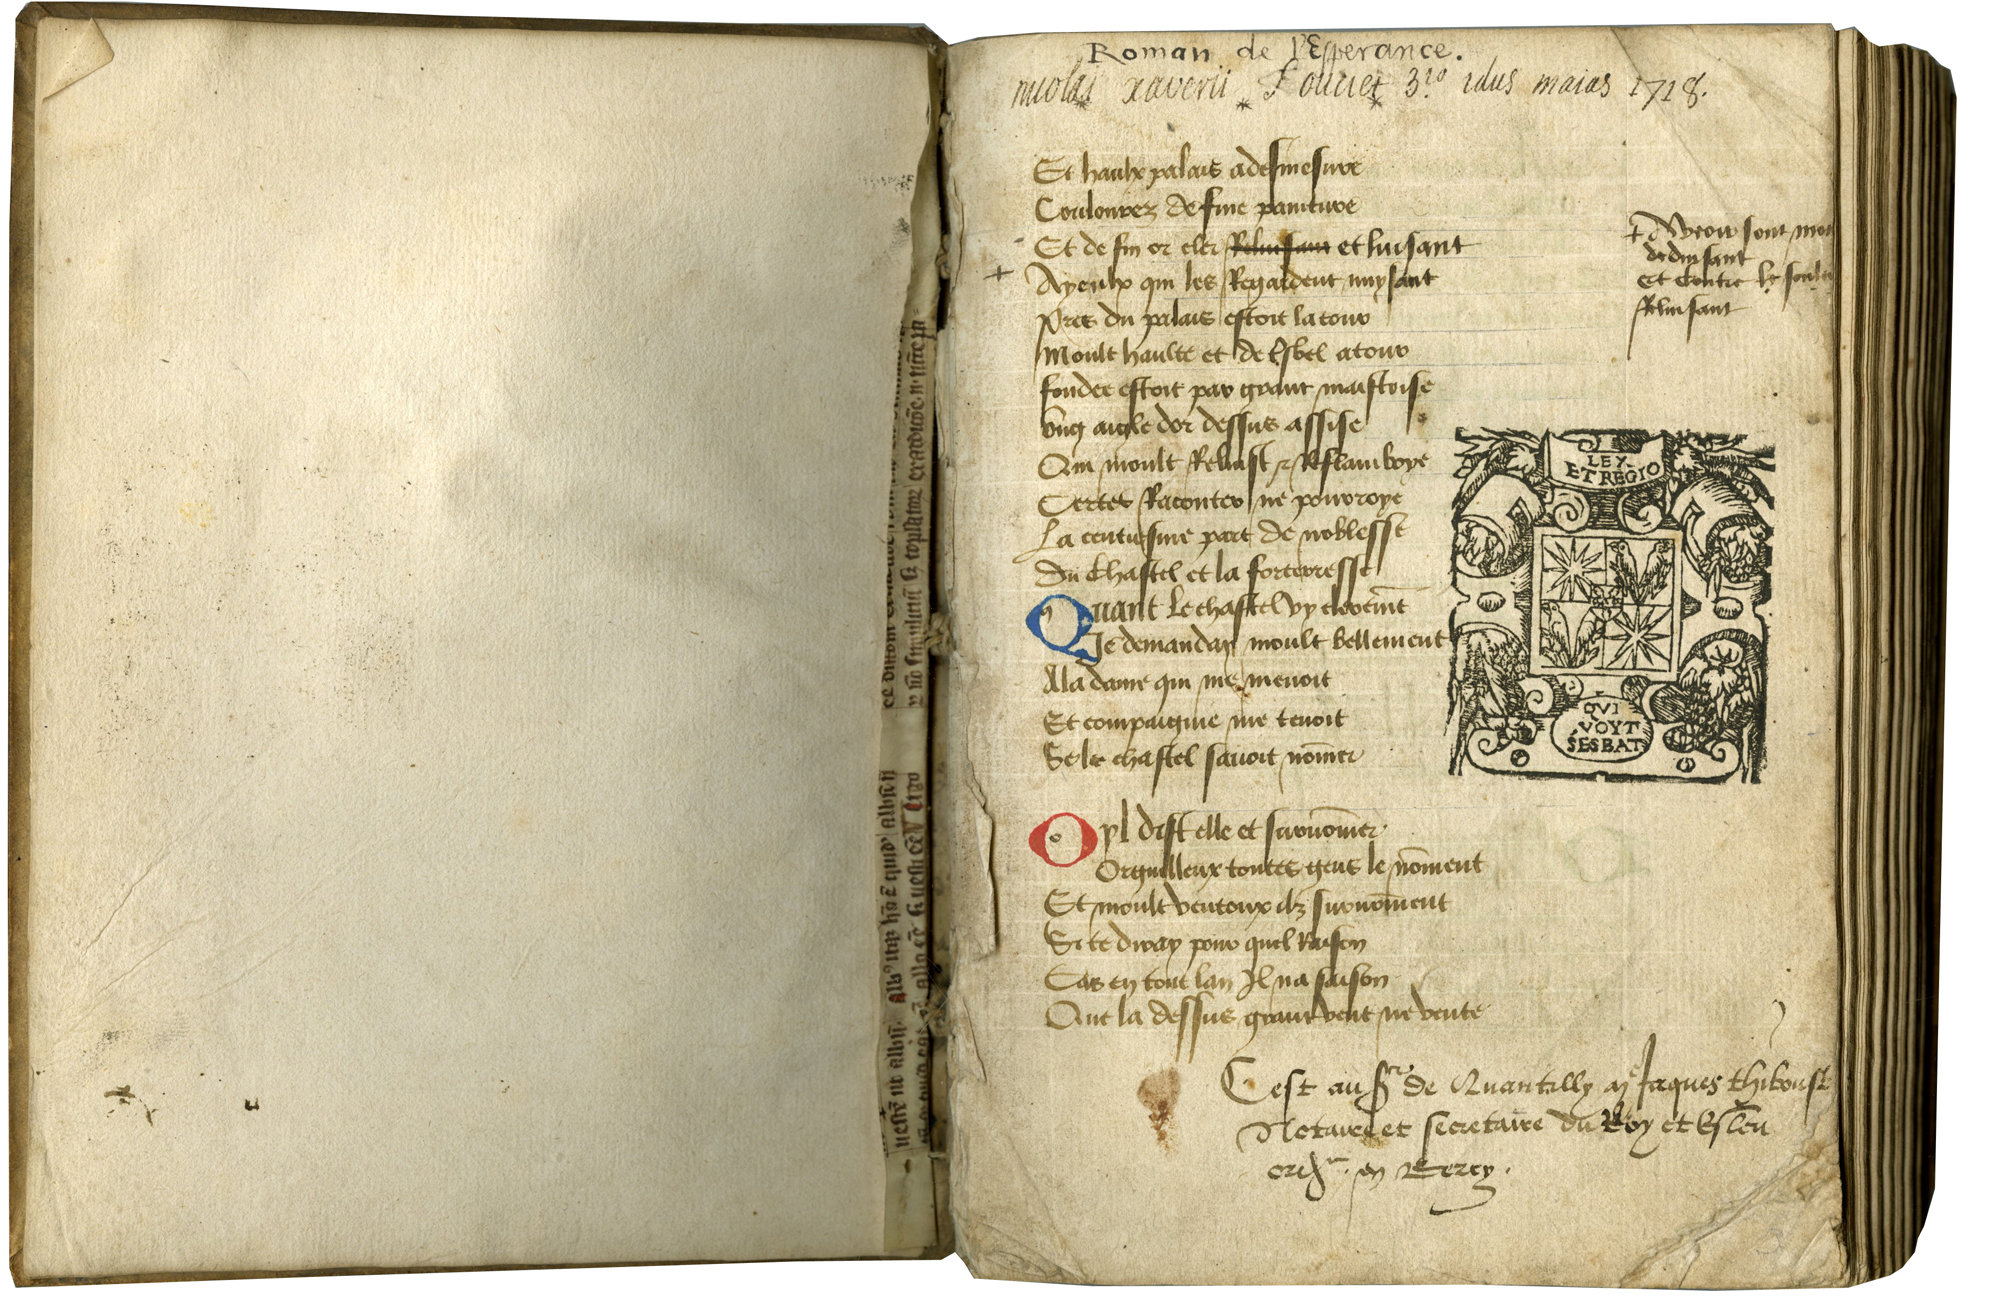 Roman de l'Esperance.
nicolai xaverii Foucict 3.io idus maias 1718.
Et haulx palais adesmesure
Coulourez de fine paincture
Et de fin or cler Reluisant et luisant
+ Ayeulx qui les Regardent nuysant
Pres du palais estoit latour
Moult haulte et de bel atour
fondee estoit par grant maistrise
Ung aigle dor dessus assise
Qui moult Reluist et Reflamboye
Certes Raconter ne pourroye
La centiesme part de noblesse
Du Chastel et la forteresse
Quant le chastel vy clerement
Je demanday moult bellement
Ala dame qui me menoit
Et compaignie me tenoit
Se le chastel savoit nōmer
Oyl dist elle et surnōmer
Orguilleux toutes gens le nōment
Et moult venteux ilz surnōment
Si te diray pour quel Raison
Car en tout lan Il na saison
Que la dessus grant vent ne vente
+ Avoir sont mou
deduisant
Et contre le soule
Reluisant
LEY.
ET REGIO
QVI
VOYT
SESBAT
C est au sr de Quantilly me Jaques thiboust
Notaire et secretaire du Roy et Esleu
en Berry.